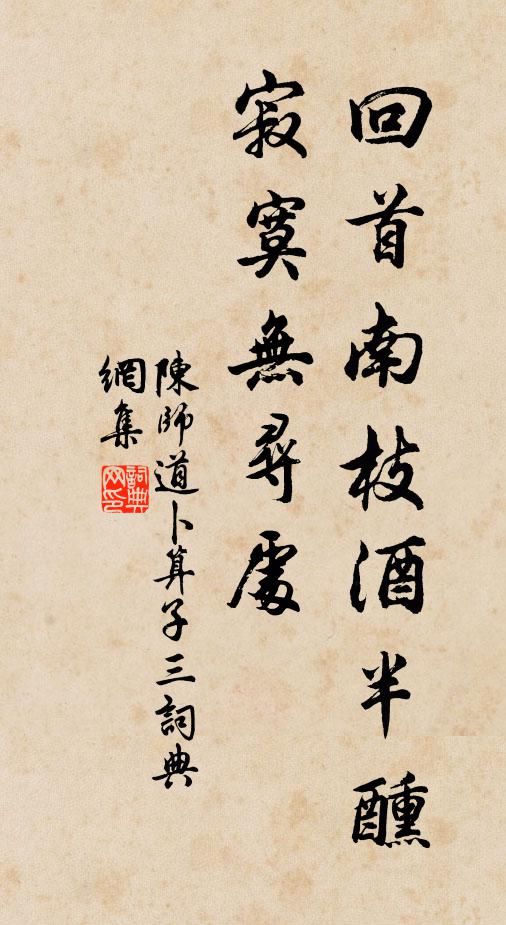 回首南枝酒半醺
寂寞無尋處
陳師道卜算子三詞典
網集
詞典
网印